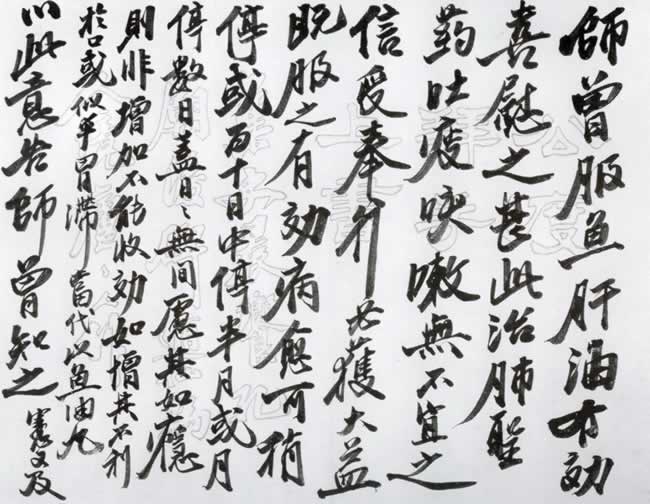 師曾服魚肝油有効
喜慰之甚此治肺聖
药吐痰咳嗽無不宜之
信受奉行必獲大益
既服之有効病愈可稍
停或百十日中停半月或月
停數日蓋日〻無間慮其如癮
則非增加不能收効如憎其不利
於口或似乎胃滯當代以魚油丸
以此意告師曾知之
公度